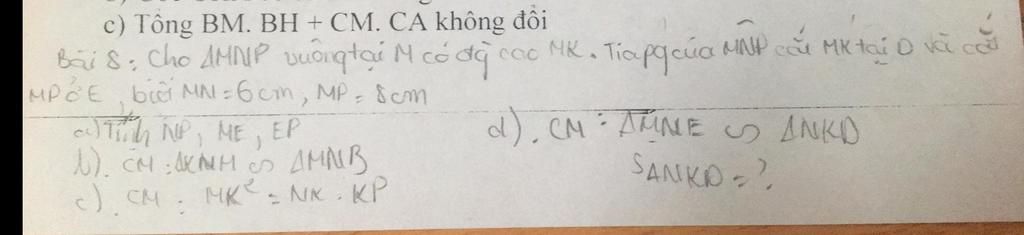 c) Tổng BM. BH + CM. CA không đổi
Bài 8: Cho ΔMNP vuông tại M có đg cao MK. Tia pg của MNP cắt MK tại D và cắt
MP ở E, biết MN = 6cm, MP = 8cm
a) Tính NP, ME, EP
b). CM: ΔKNM ∽ ΔMNP
c). CM: MK² = NK . KP
d). CM: ΔMNE ∽ ΔNKD
SΔNKD = ?.